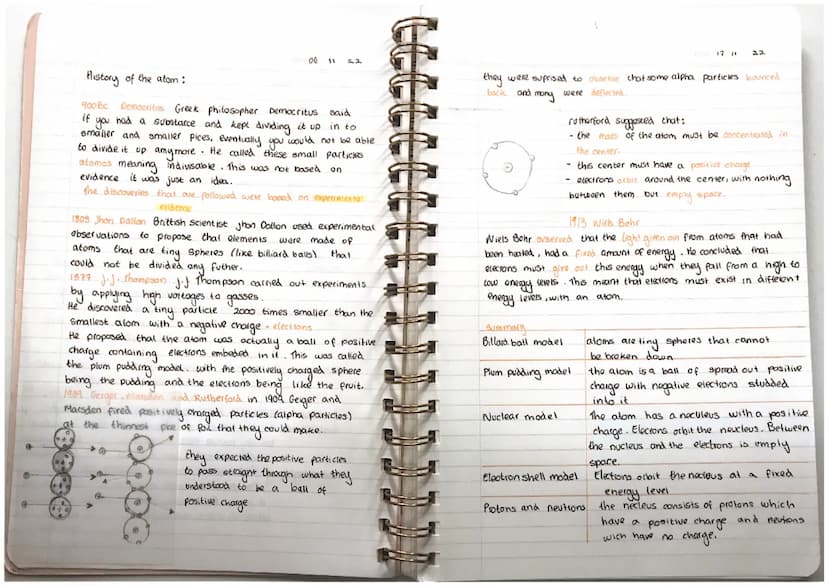 06 11 22
History of the atom :
400BC Democritus Greek philosopher Democritus said
if you had a substance and kept dividing it up in to
smaller and smaller pices, eventually you would not be able
to divide it up anymore. He called these small particles
atomos meaning indivisable. This was not based on
evidence it was just an idea.
the discoveries that are followed were based on experimental
evidence
Jhon Dalton Brittish scientist jhon Dalton used experimental
observations to propose that elements were made of
atoms that are tiny spheres (like billiard balls) that
could not be divided any futher.
J.J. Thompson J.J Thompson carried out experiments
by applying high voltages to gasses.
He discovered a tiny particle 2000 times smaller than the
smallest atom with a negative charge = electrons
He proposed that the atom was actually a ball of positive
charge containing electrons embeded in it. This was called
the plum pudding model. with the positively charged sphere
being the pudding and the electrons being like the fruit.
Marsden and Rutherford in 1909 Geiger and
Marsden fired positively charged particles (alpha particles)
at the thinnest pice of foil that they could make.
they expected the positive particles
to pass straight through what they
understood to be a ball of
positive charge
17 11 22
they were suprised to observe that some alpha particles bounced
back and many were deflected.
rutherford suggested that:
- the mass of the atom must be concentrated in
the center.
- this center must have a positive charge
- electrons orbit around the center, with nothing
between them but empty space.
1913 Niels Bohr
Niels Bohr observed that the light given out from atoms that had
been heated, had a fixed amount of energy. He concluded that
elecrons must give out this energy when they fall from a high to
low energy levels. This meant that eletrons must exist in different
energy levels, with an atom.
Summary
Billard ball model atoms are tiny spheres that cannot
be broken down
Plum pudding model the atom is a ball of spread out positive
charge with negative electrons studded
into it
Nuclear model The atom has a necleus with a positive
charge. Elecrons orbit the necleus. Between
the nucleus and the electrons is empty
space.
Electron shell model Eletons orbit the nacleus at a fixed
energy level
Protons and neutrons the necleus consists of protons which
have a positive charge and neutrons
wich have no charge.